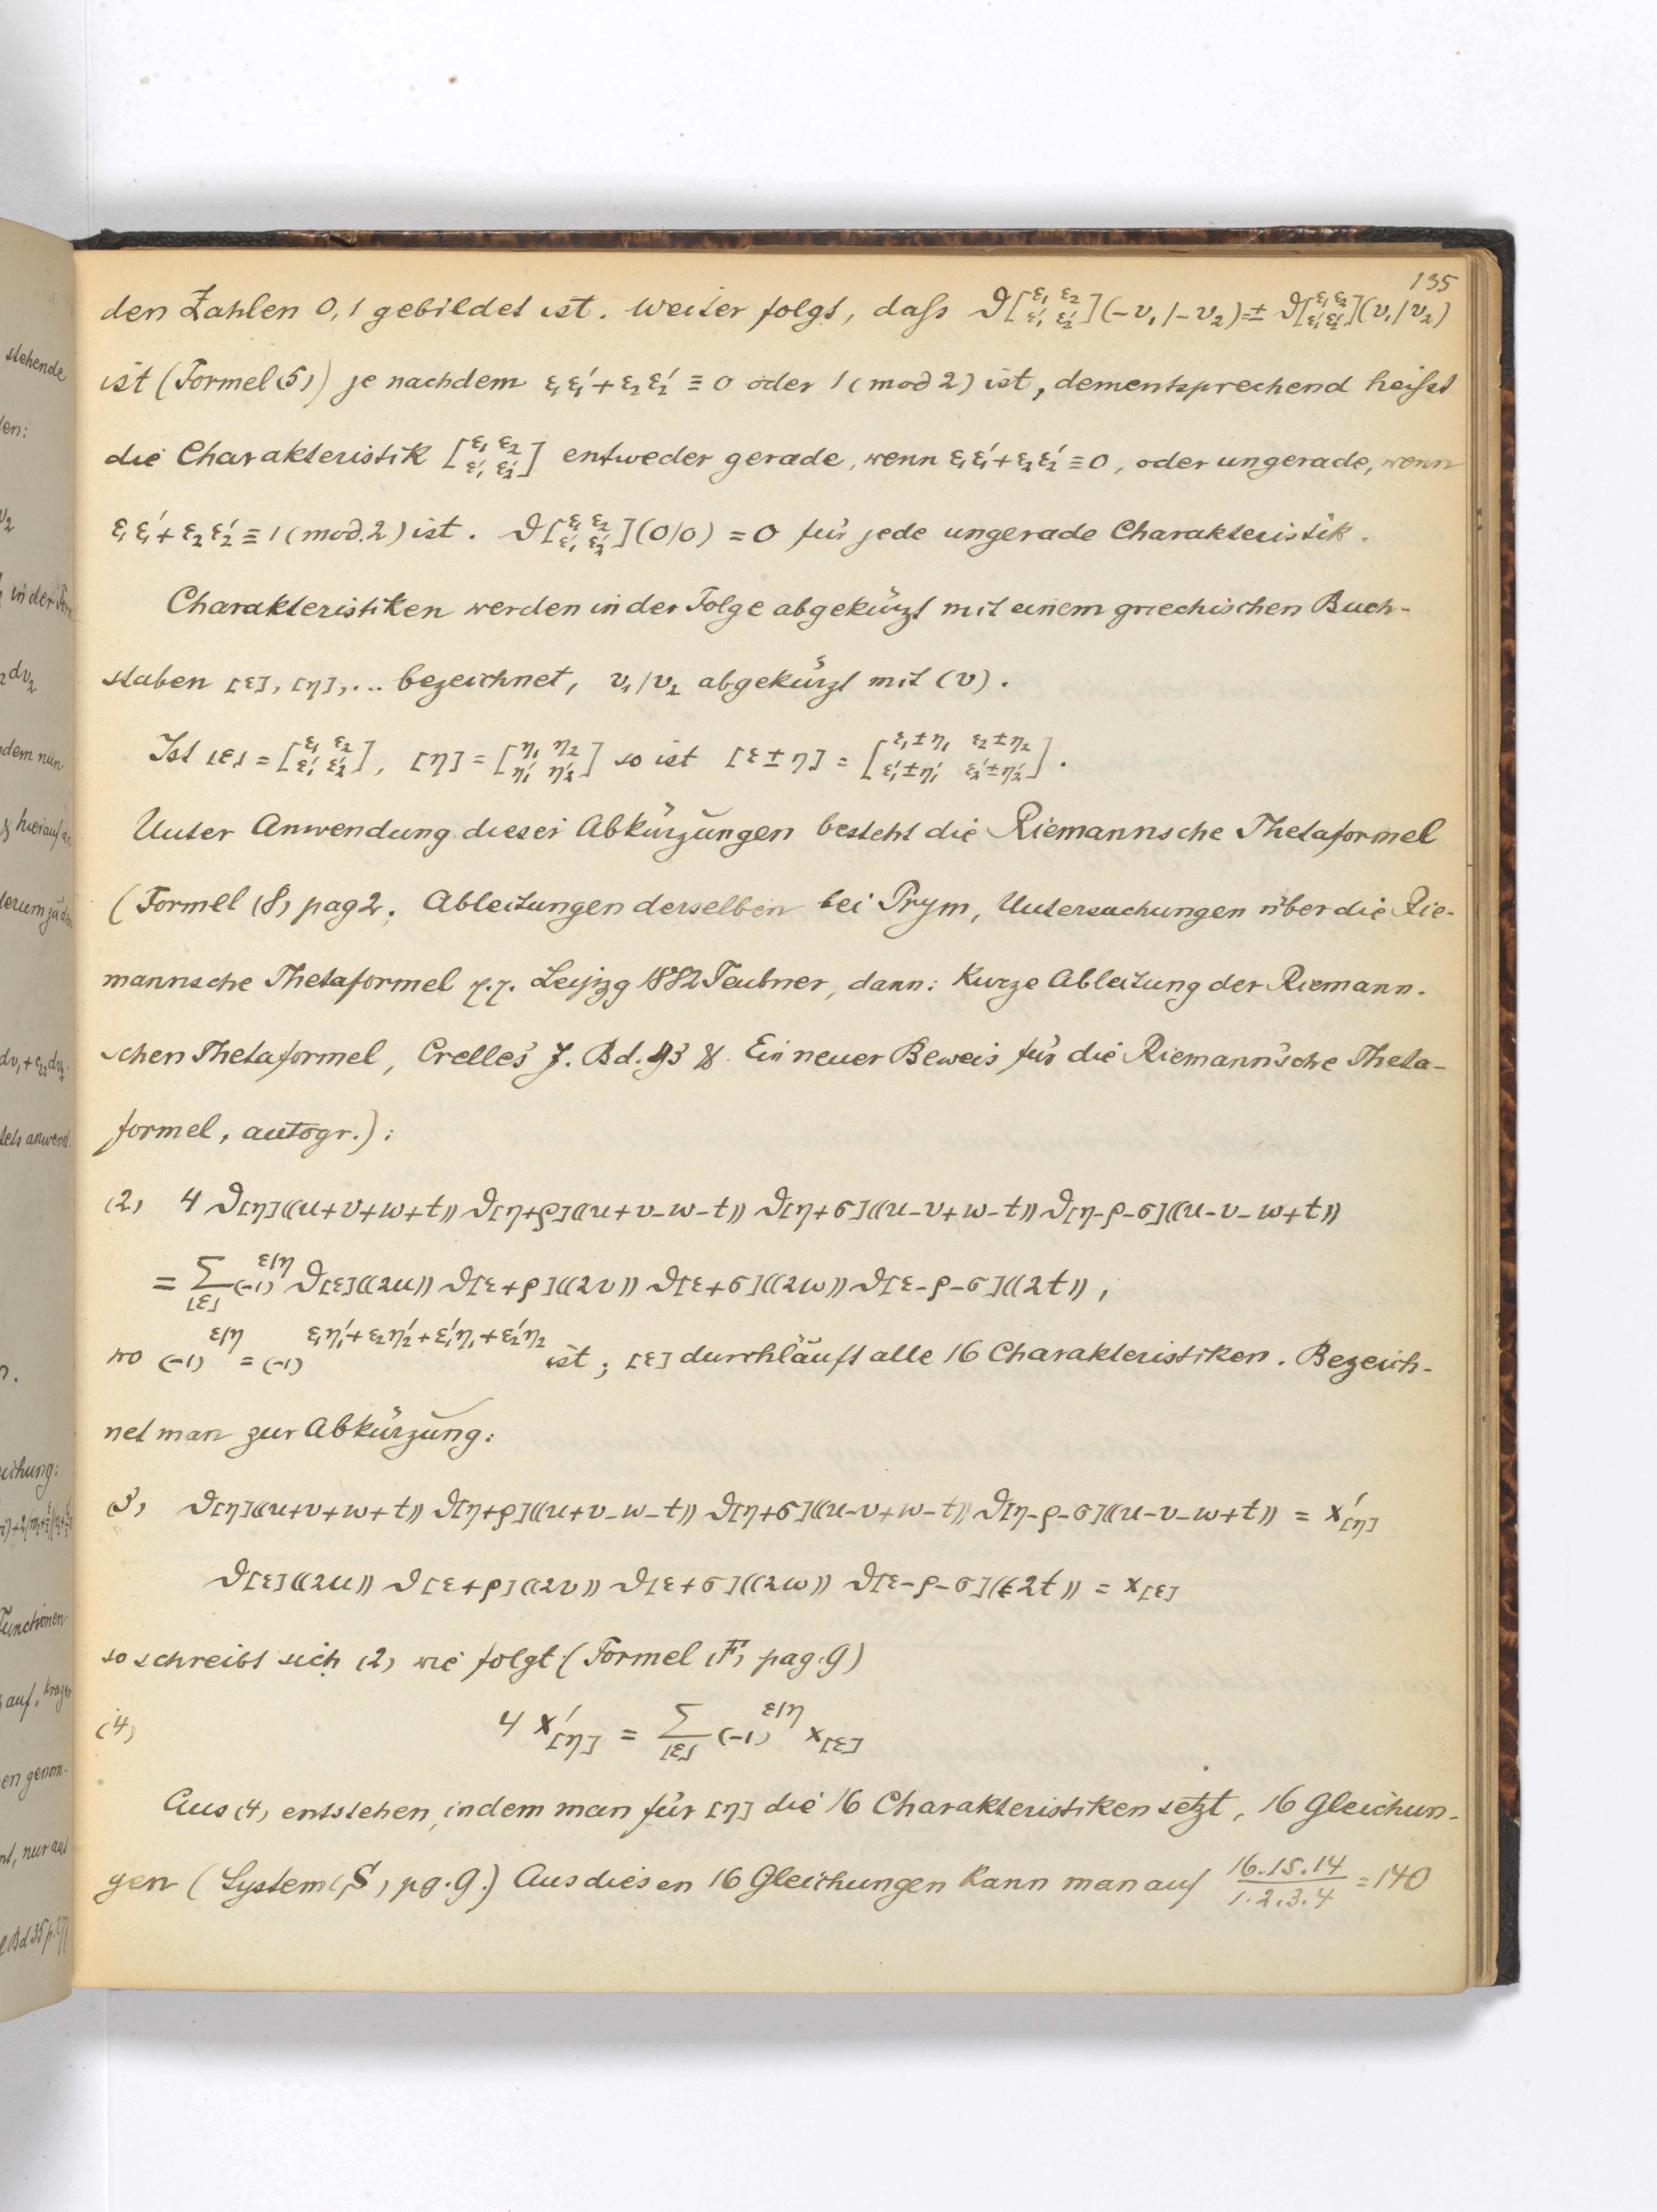 135
den Zahlen 0, 1 gebildet ist. Weiter folgt, daſs ϑ[ε₁ ε₂ / ε₁′ ε₂′](−v₁/−v₂) = ± ϑ[ε₁ ε₂ / ε₁′ ε₂′](v₁/v₂)
ist (Formel (5)) je nachdem ε₁ε₁′ + ε₂ε₂′ ≡ 0 oder 1 (mod 2) ist, dementsprechend heiſst
die Charakteristik [ε₁ ε₂ / ε₁′ ε₂′] entweder gerade, wenn ε₁ε₁′ + ε₂ε₂′ ≡ 0, oder ungerade, wenn
ε₁ε₁′ + ε₂ε₂′ ≡ 1 (mod. 2) ist. ϑ[ε₁ ε₂ / ε₁′ ε₂′](0/0) = 0 für jede ungerade Charakteristik.
Charakteristiken werden in der Folge abgekürzt mit einem griechischen Buch-
staben [ε], [η], ... bezeichnet, v₁/v₂ abgekürzt mit (v).
Ist [ε] = [ε₁ ε₂ / ε₁′ ε₂′], [η] = [η₁ η₂ / η₁′ η₂′] so ist [ε ± η] = [ε₁±η₁ ε₂±η₂ / ε₁′±η₁′ ε₂′±η₂′].
Unter Anwendung dieser Abkürzungen besteht die Riemannsche Thetaformel
(Formel (8) pag 2. Ableitungen derselben bei Prym, Untersuchungen über die Rie-
mannsche Thetaformel Leipzg 1882 Teubner, dann: Kurze Ableitung der Riemann.
schen Thetaformel, Crelles J. Bd. 93 & Ein neuer Beweis für die Riemann'sche Theta-
formel, autogr.):
(2) 4 ϑ[η]((u+v+w+t)) ϑ[η+ρ]((u+v−w−t)) ϑ[η+σ]((u−v+w−t)) ϑ[η−ρ−σ]((u−v−w+t))
= Σ[ε] (−1)^ε/η ϑ[ε]((2u)) ϑ[ε+ρ]((2v)) ϑ[ε+σ]((2w)) ϑ[ε−ρ−σ]((2t)),
wo (−1)^ε/η = (−1)^ε₁η₁′+ε₂η₂′+ε₁′η₁+ε₂′η₂ ist; [ε] durchläuft alle 16 Charakteristiken. Bezeich-
net man zur Abkürzung:
(3) ϑ[η]((u+v+w+t)) ϑ[η+ρ]((u+v−w−t)) ϑ[η+σ]((u−v+w−t)) ϑ[η−ρ−σ]((u−v−w+t)) = x′[η]
ϑ[ε]((2u)) ϑ[ε+ρ]((2v)) ϑ[ε+σ]((2w)) ϑ[ε−ρ−σ]((2t)) = x[ε]
so schreibt sich (2) wie folgt (Formel (F) pag. 9)
(4) 4 x′[η] = Σ[ε] (−1)^ε/η x[ε]
Aus (4) entstehen, indem man für [η] die 16 Charakteristiken setzt, 16 Gleichun-
gen (System (S) pg. 9.) Aus diesen 16 Gleichungen kann man auf 16.15.14 / 1.2.3.4 = 140